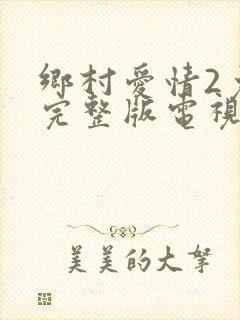 鄉村愛情2
完整版電視
美美的大拏